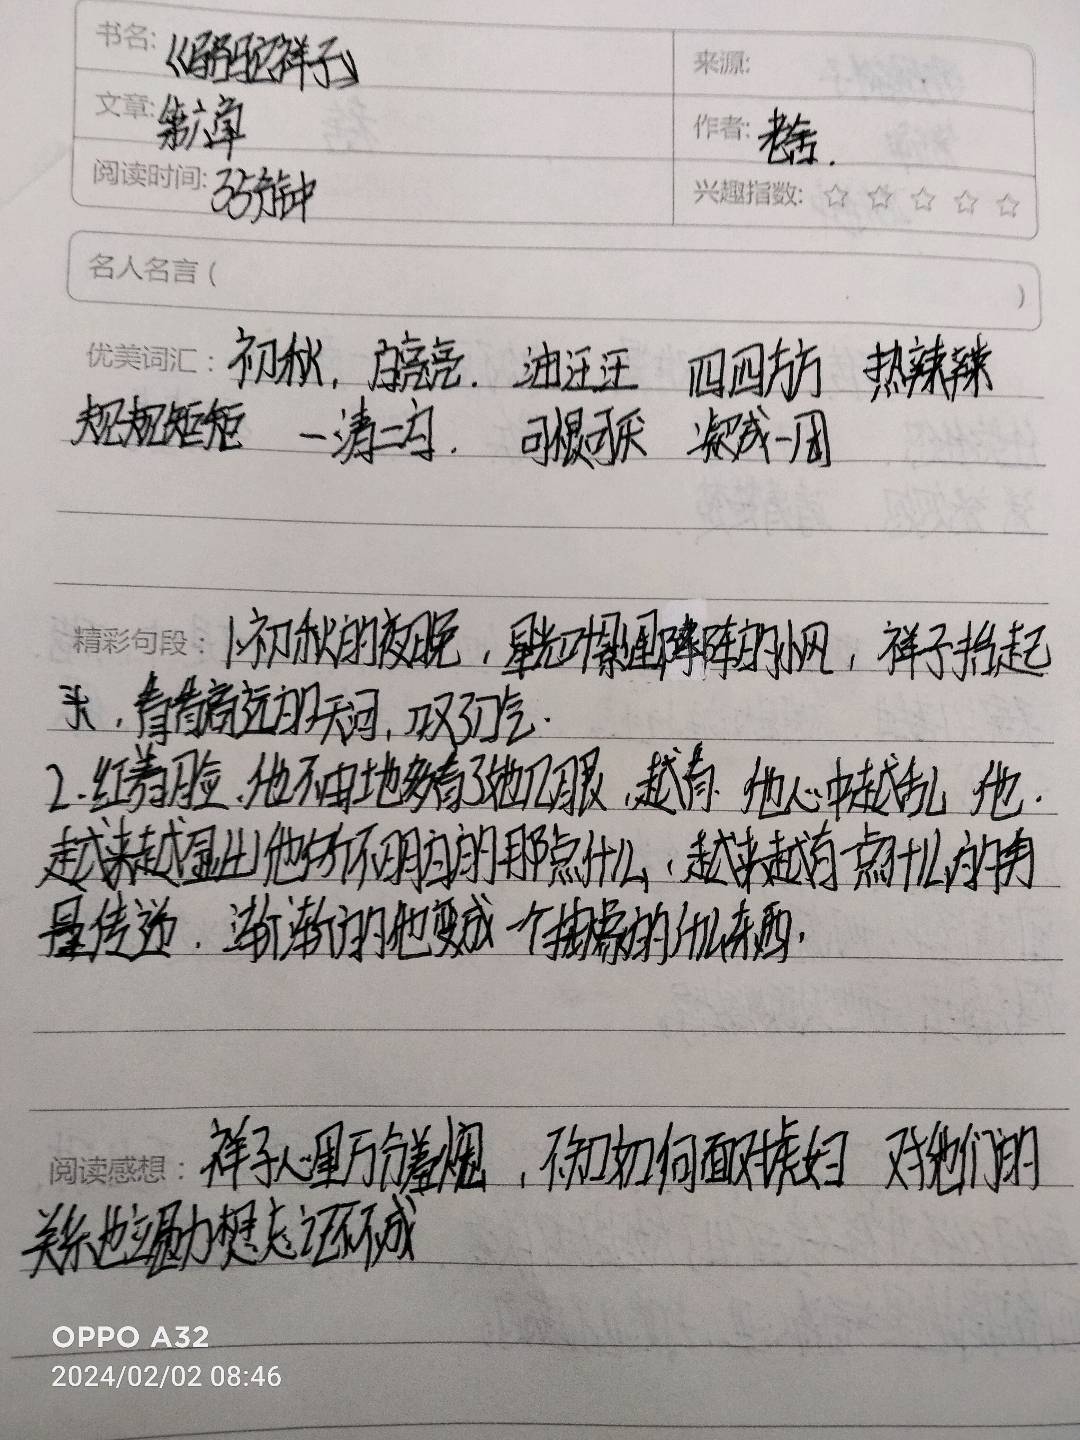 书名:《骆驼祥子》
来源:
文章:第六章
作者:老舍.
阅读时间:35分钟
兴趣指数:☆ ☆ ☆ ☆ ☆
名人名言( )
优美词汇:初秋,白亮亮.油汪汪 四四方方 热辣辣
规规矩矩 一清二白. 可恨可厌 凝成一团
精彩句段:1.初秋的夜晚,星光叶影里阵阵的小风,祥子抬起
头,看着高远的天河,叹了口气.
2.红着脸,他不由地多看了她几眼,越看.他心中越乱 他.
越来越显出他所不明白的那点什么,越来越有一点什么的
传递.渐渐的他变成一个抽象的什么东西.
阅读感想:祥子心里万分羞愧,不知如何面对虎妞 对他们的
关系也立 想忘记不成
OPPO A32
2024/02/02 08:46